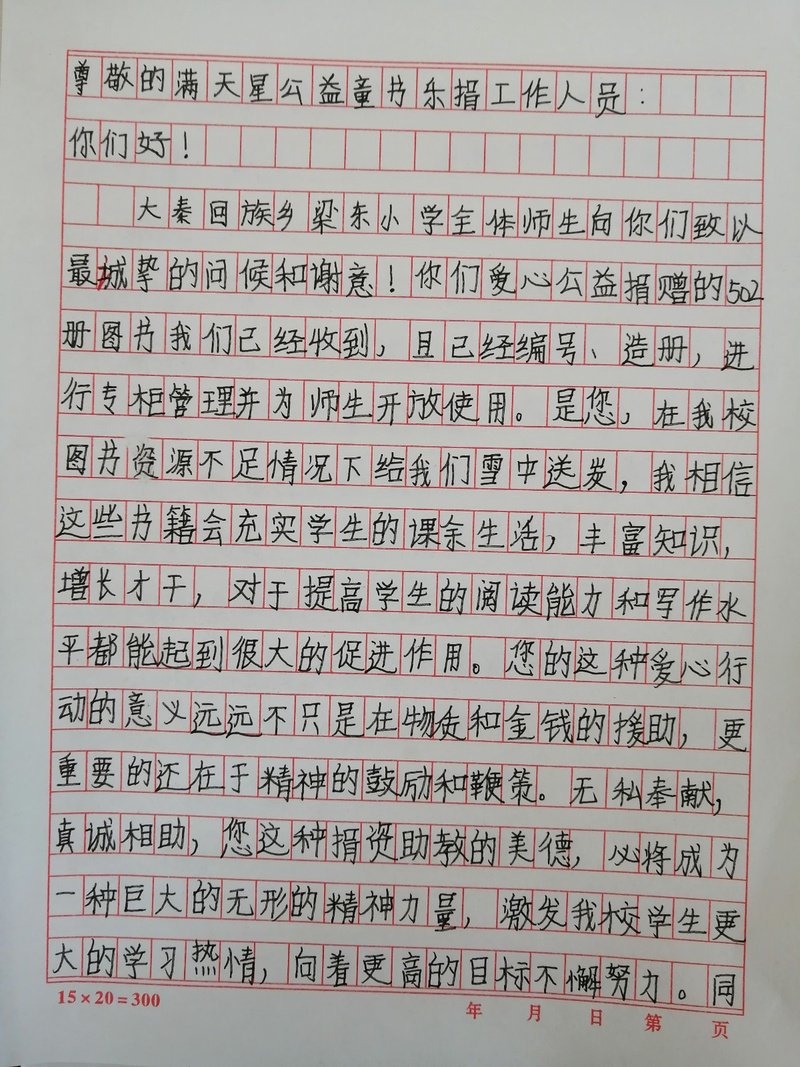 尊敬的满天星公益童书乐捐工作人员：
你们好！
大秦回族乡梁东小学全体师生向你们致以
最诚挚的问候和谢意！你们爱心公益捐赠的502
册图书我们已经收到，且已经编号、造册，进
行专柜管理并为师生开放使用。是您，在我校
图书资源不足情况下给我们雪中送炭，我相信
这些书籍会充实学生的课余生活，丰富知识，
增长才干，对于提高学生的阅读能力和写作水
平都能起到很大的促进作用。您的这种爱心行
动的意义远远不只是在物质和金钱的援助，更
重要的还在于精神的鼓励和鞭策。无私奉献，
真诚相助，您这种捐资助教的美德，必将成为
一种巨大的无形的精神力量，激发我校学生更
大的学习热情，向着更高的目标不懈努力。同
15×20=300 年 月 日 第 页